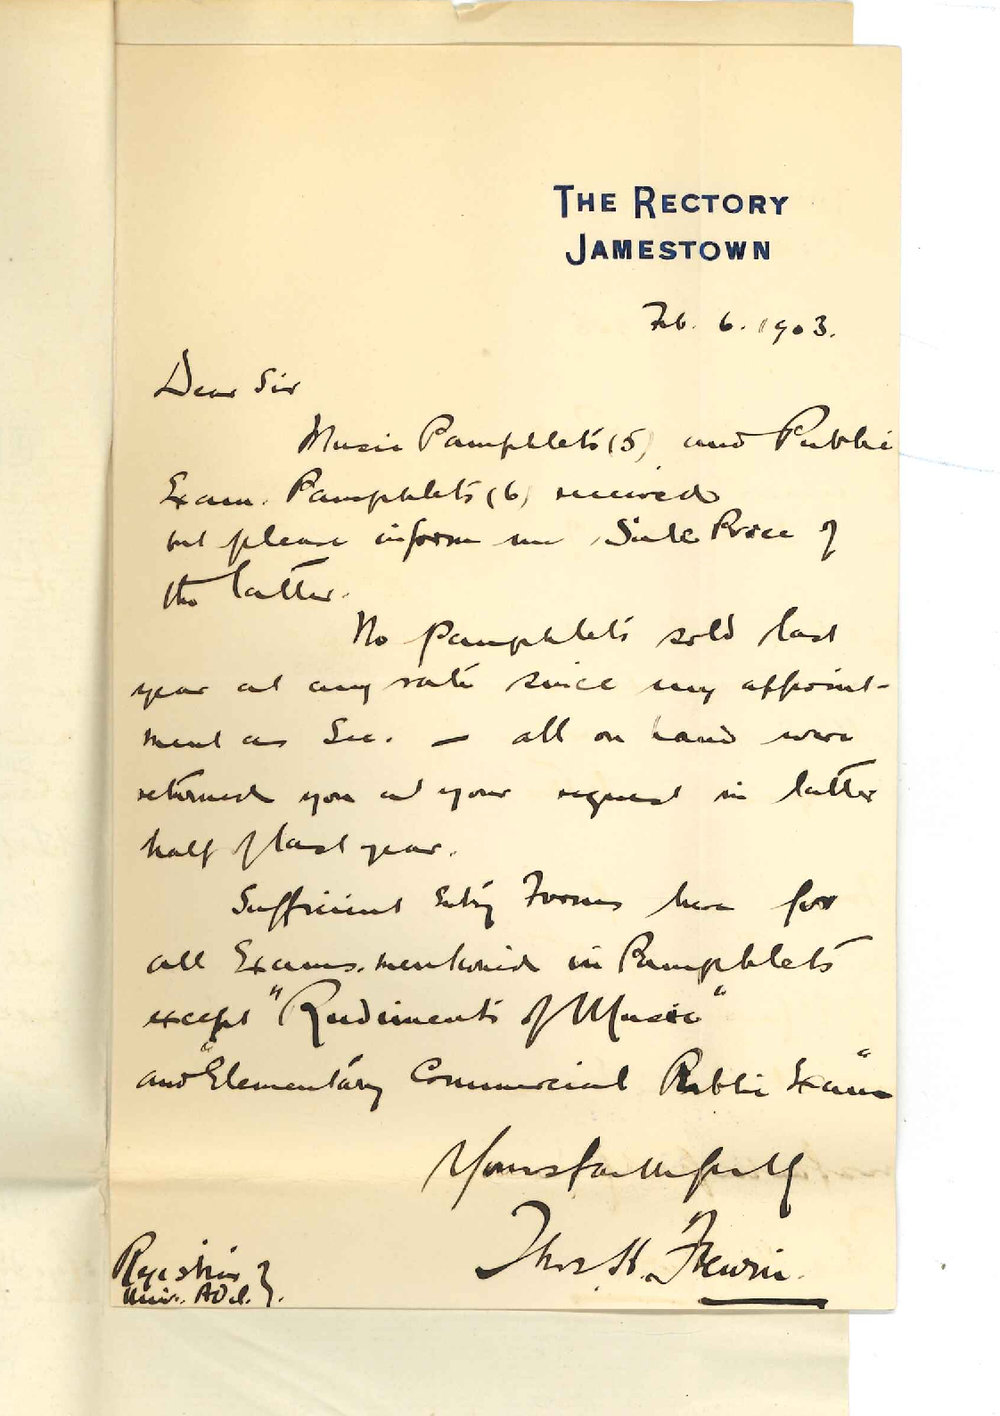 THE RECTORY
JAMESTOWN
Feb. 6. 1903.
Dear Sir
Music Pamphlets (5) and Public
Exam. Pamphlets (6) received
but please inform me Sale Price of
the latter.
No pamphlets sold last
year at any rate since my appoint-
ment as Sec. — all on hand were
returned you at your request in latter
half of last year.
Sufficient Entry Forms here for
all Exams. mentioned in Pamphlets
except "Rudiments of Music"
and "Elementary Commercial Public Exam"
Yours faithfully
Thos. H. Frewin.
Registrar
Univ. Adel.